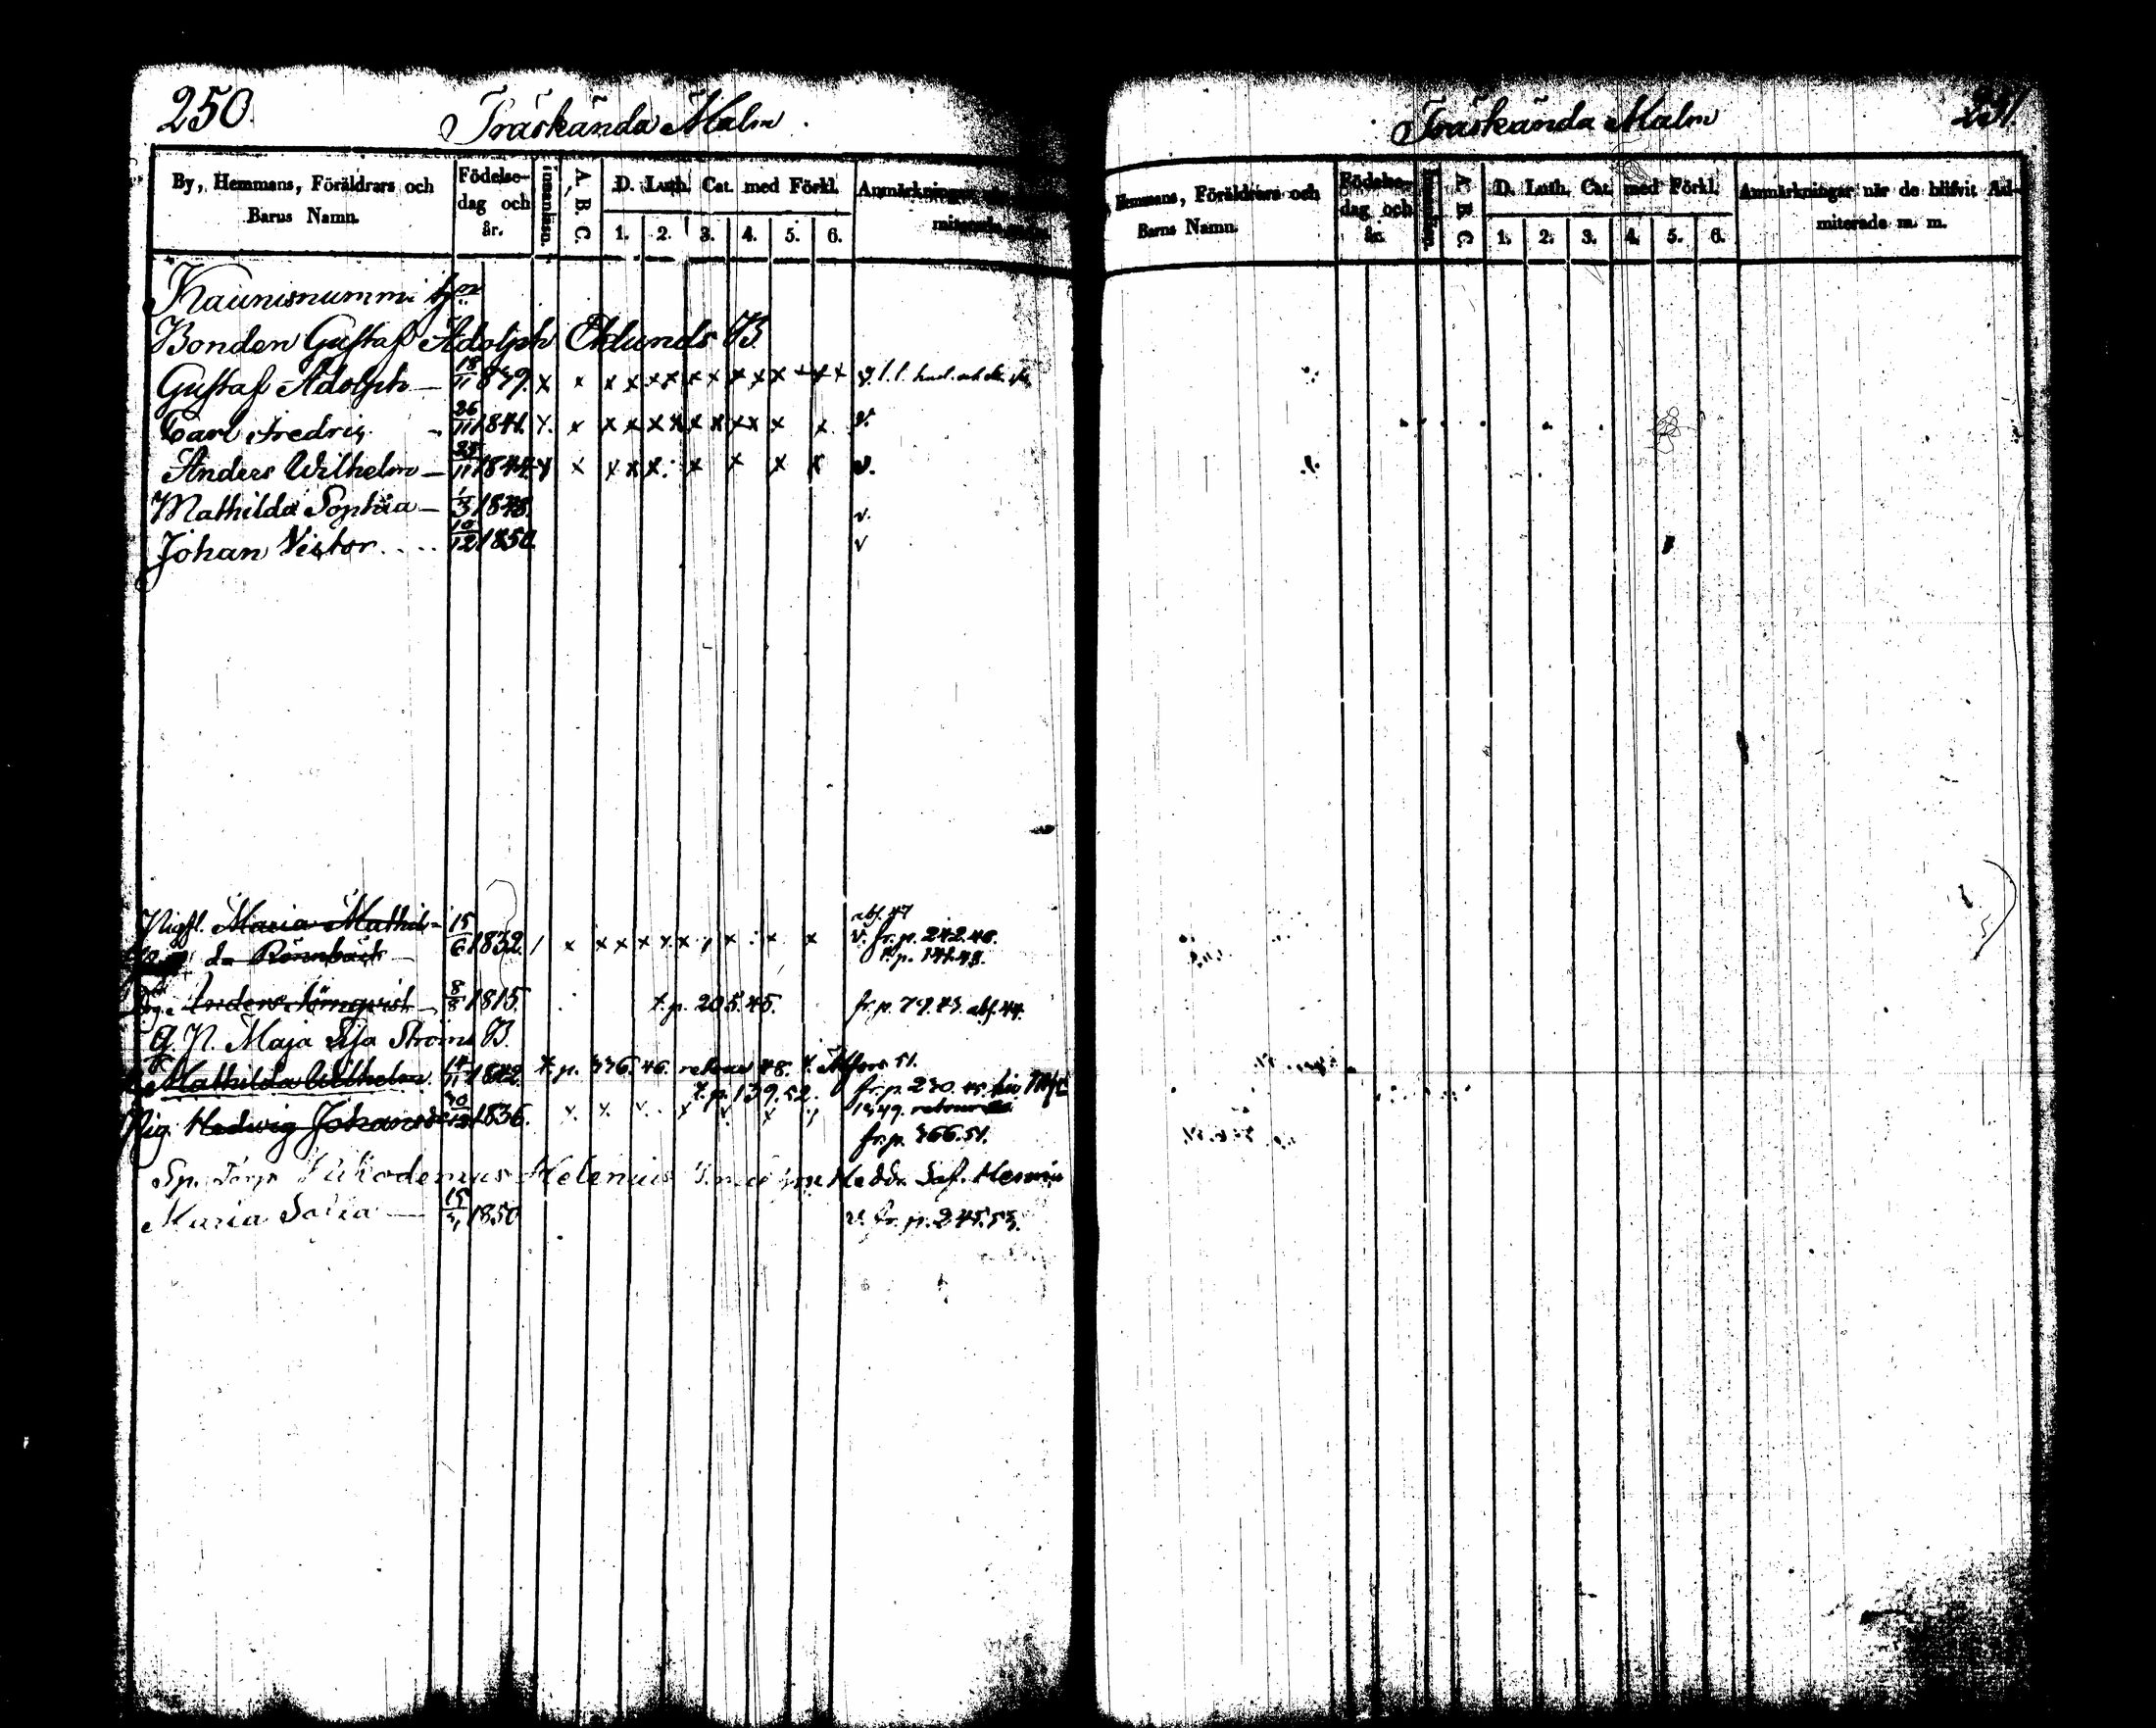 250.
Träskända Malm.
By, Hemmans, Föräldrars och
Barns Namn.
Födelse-
dag och
år.
Innanläsn.
A. B. C.
D. Luth. Cat. med Förkl.
1. 2. 3. 4. 5. 6.
Anmärkningar
Kaunisnummi by
Bonden Gustaf Adolph Eklunds B.
Gustaf Adolph — 18/11 1839. x x x x x x x x x x x x x x
Carl Fredric 26/11 1841. x. x x x x x x x x x x x v.
Anders Wilhelm — 11 1844. x x x x x x x x x v.
Mathilda Sophia — 1/3 1848. v.
Johan Victor .... 10/12 1850. v
abs. 47
Maria Mathil-
da Rönnbäck — 15/6 1832. / x x x x x x , x : x x v. fr. p. 242. 46.
t. p. 141. 49.
Anders 8/8 1815. t. p. 205. 45. fr. p. 79. 43. abs. 44.
Maja Ströms B.
Mathilda Wilhelm. 11 1842. t. p. 336. 46. retour 48. 51.
t. p. 139. 52. fr. p. 230. 45.
Pig. Hedwig Johansdr 30/12 1836. 49. retour
fr. p. 366. 51.
Sp. Torp. Nikodemus Helenius
Maria Sofia — 15 1850 v. fr. p. 245. 53.
Träskända Malm
251.
Hemmans, Föräldrars och
Barns Namn.
Födelse-
dag och
år.
Innanläsn.
A. B. C.
D. Luth. Cat. med Förkl.
1. 2. 3. 4. 5. 6.
Anmärkningar när de blifvit Ad-
miterade m. m.